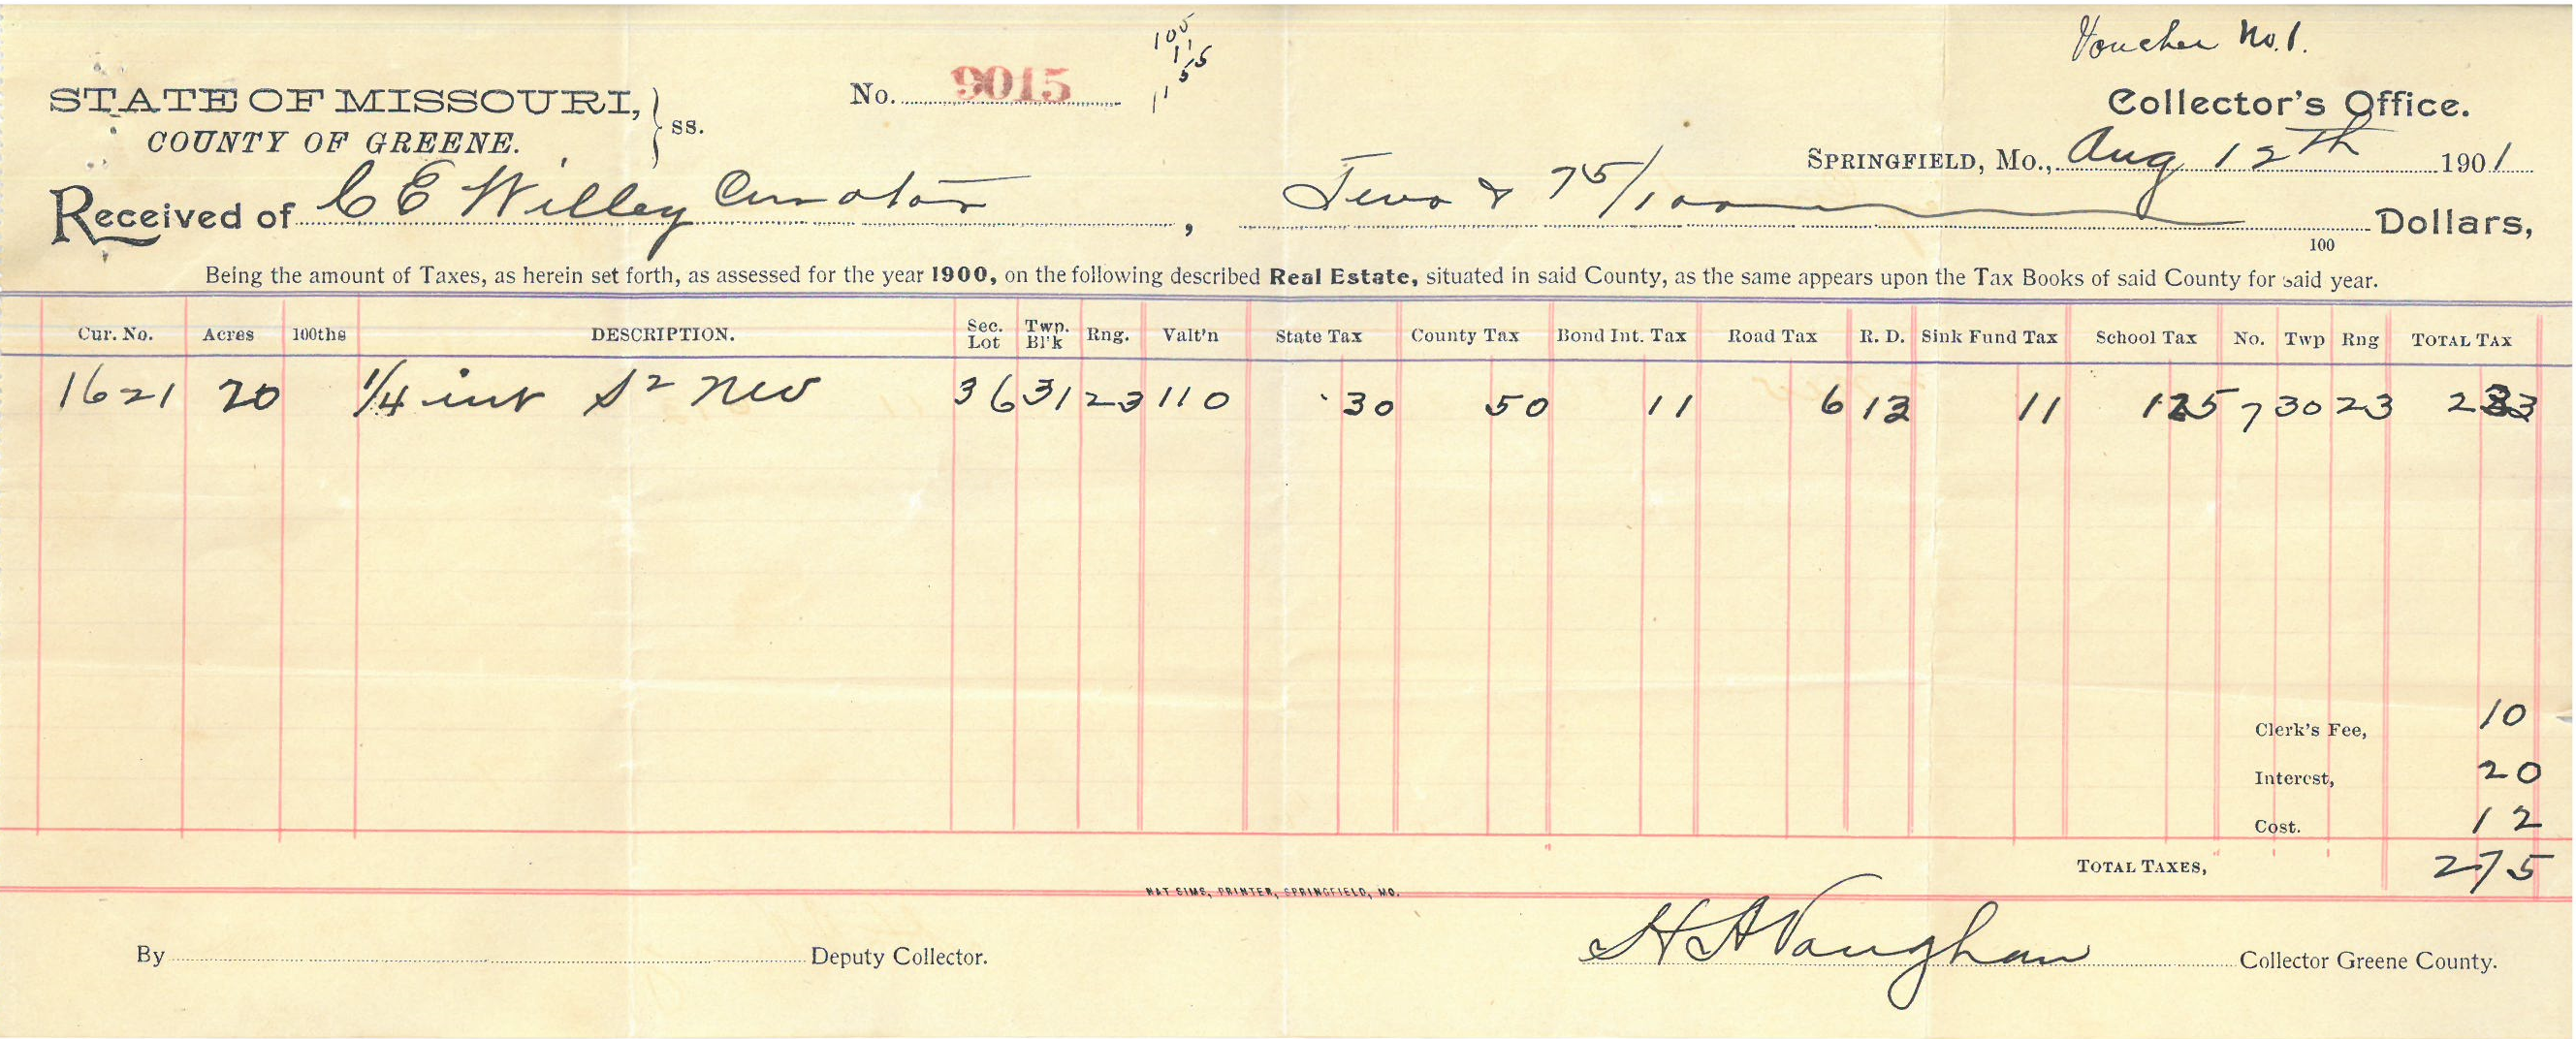 Voucher No. 1.
100
1 15
5
1 1
STATE OF MISSOURI, } ss.
COUNTY OF GREENE.
No. 9015
Collector's Office.
SPRINGFIELD, MO., Aug 12th 1901
Received of C E Willey Curator, Two & 75/100 Dollars,
100
Being the amount of Taxes, as herein set forth, as assessed for the year 1900, on the following described Real Estate, situated in said County, as the same appears upon the Tax Books of said County for said year.
Cur. No. Acres 100ths DESCRIPTION. Sec. Lot Twp. Bl'k Rng. Valt'n State Tax County Tax Bond Int. Tax Road Tax R. D. Sink Fund Tax School Tax No. Twp Rng TOTAL TAX
1621 20 1/4 int S2 NW 36 31 23 110 30 50 11 6 13 11 1 25 7 30 23 2 33
Clerk's Fee, 10
Interest, 20
Cost. 12
TOTAL TAXES, 2 75
NAT SIMS, PRINTER, SPRINGFIELD, MO.
By Deputy Collector. H H Vaughan Collector Greene County.